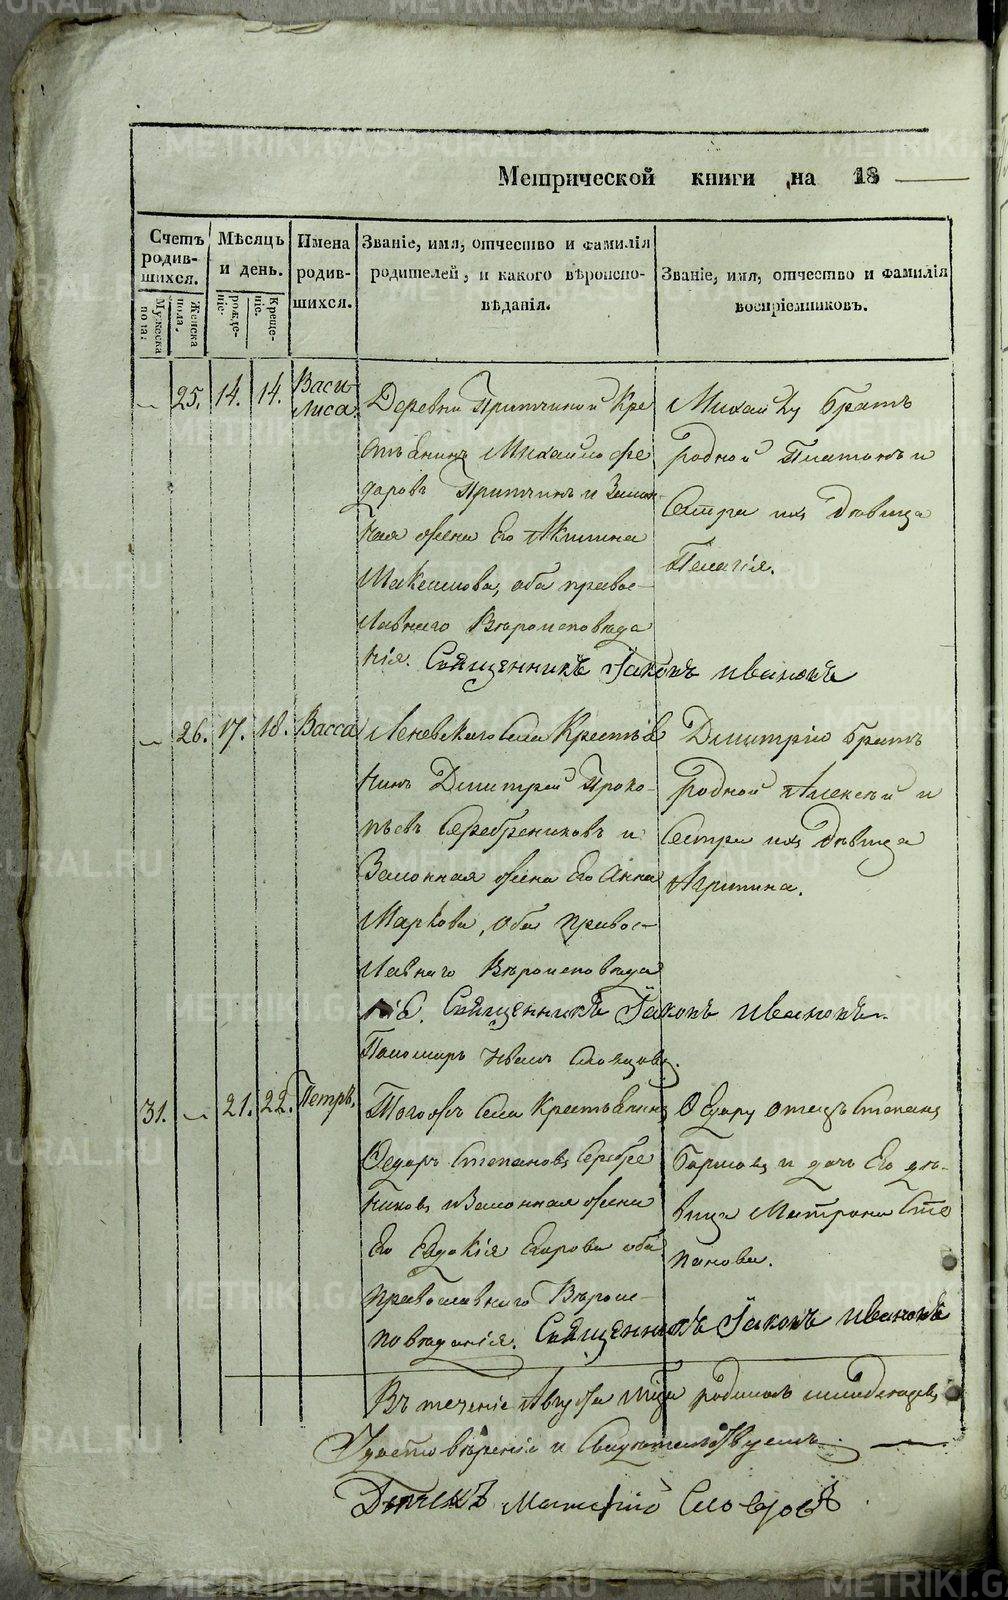 METRIKI.GASO-URAL.RU
Метрической книги на 18
Счетъ родив-шихся.
Мужеска пола.
Женска пола.
Мѣсяцъ и день.
рожде-ніе.
Креще-ніе.
Имена родив-шихся.
Званіе, имя, отчество и фамилія
родителей, и какого вѣроиспо-
вѣданія.
Званіе, имя, отчество и фамилія
воспріемниковъ.
25. 14. 14. Васи-
лиса.
Деревни Притчиной Кре
стьянинъ Михайло Фе
доровъ Притчинъ и Закон-
ная жена Его Акилина
Максимова, оба право-
славнаго Вѣроисповѣда
нія. Священникъ Іаковъ Ивановъ
Михайлу братъ
родной Платонъ и
Сестра ихъ Дѣвица
Пелагія.
26. 17. 18. Васса
Леневскаго Села Крестья
нинъ Дмитрей Проко-
пьевъ Серебрениковъ и
Законная жена Его Анна
Маркова, оба право-
славнаго Вѣроисповѣда
нія. Священникъ Іаковъ Ивановъ.
Пономарь Иванъ
Дмитрію братъ
родной Алексѣй и
Сестра ихъ Дѣвица
Агрипина.
31. 21. 22. Петръ.
Тогожъ Села Крестьянинъ
Федоръ Степановъ Серебре
никовъ и Законная жена
Его Евдокія Егорова оба
православнаго Вѣроис-
повѣданія. Священникъ Іаковъ Ивановъ
Федору отецъ Степанъ
и дочь Его дѣ-
вица Матрона Сте
панова.
Въ теченіе Августа мѣсяца родились
и Свидѣтельствуемъ.